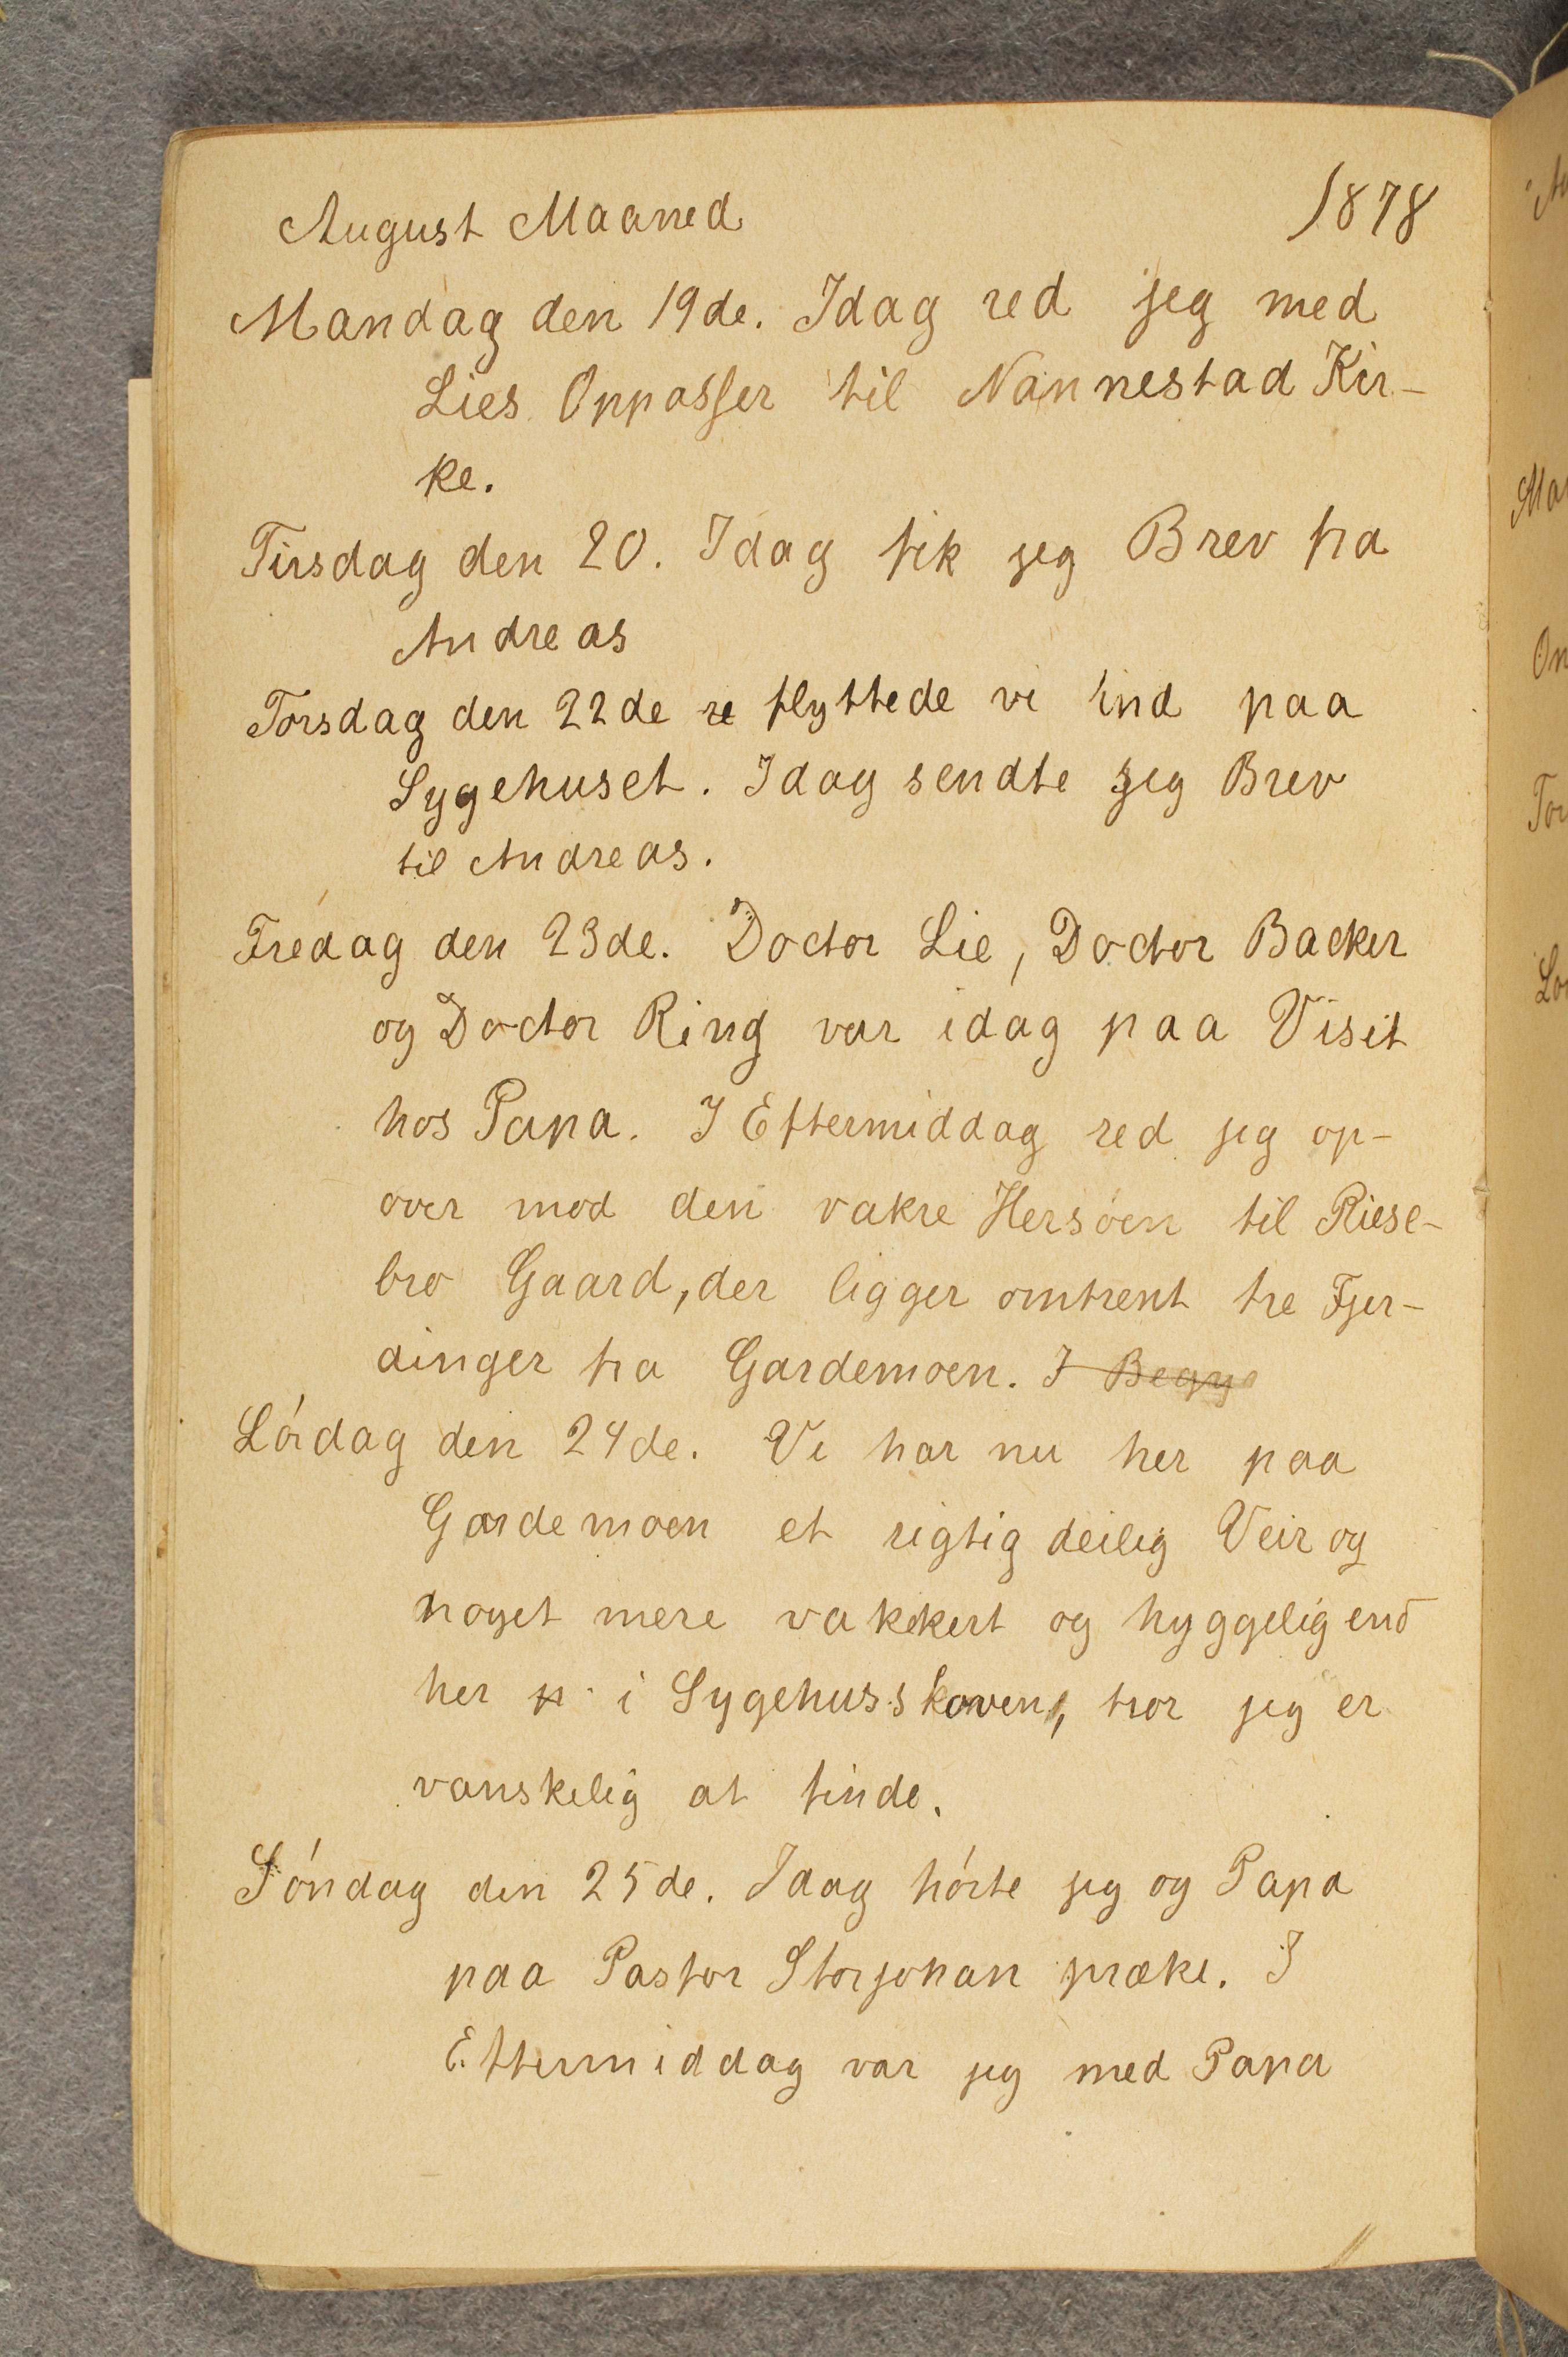 August Maaned 1878
Mandag den 19de. Idag red jeg med
Lies Oppasser til Nannestad Kir-
ke.
Tirsdag den 20. Idag fik jeg Brev fra
Andreas
Torsdag den 22de re flyttede vi ind paa
Sygehuset. Idag sendte jeg Brev
til Andreas.
Fredag den 23de. Doctor Lie, Doctor Backer
og Doctor Ring var idag paa Visit
hos Papa. I Eftermiddag red jeg op-
over mod den vakre Hersöen til Riese-
bro Gaard, der ligger omtrent tre Fjer-
dinger fra Gardemoen. I Begy
Lördag den 24de. Vi har nu her paa
Gardemoen et rigtig deilig Veir og
noget mere vakkert og hyggelig end
her p i Sygehusskoven, tror jeg er
vanskelig at finde.
Söndag den 25de. Idag hörte jeg og Papa
paa Pastor Storjohan præke. I
Eftermiddag var jeg med Papa